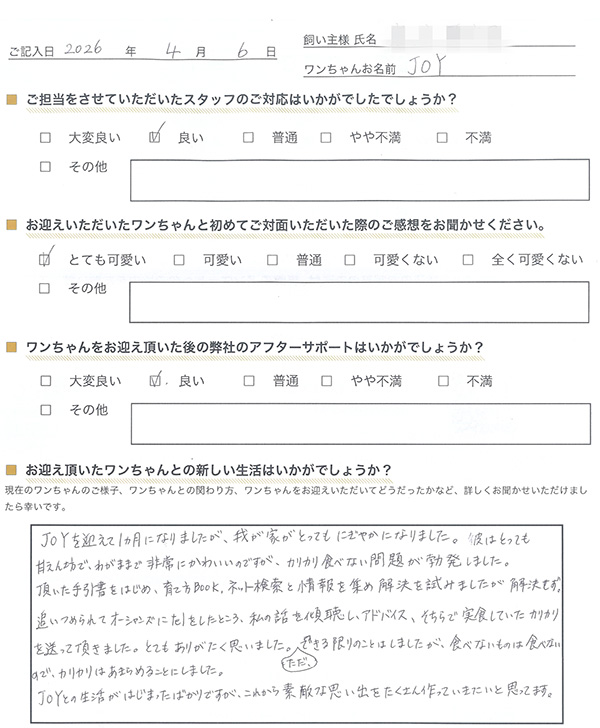 ご記入日 2026 年 4 月 6 日
飼い主様 氏名
ワンちゃんお名前 JOY
■ ご担当をさせていただいたスタッフのご対応はいかがでしたでしょうか？
□ 大変良い ☑ 良い □ 普通 □ やや不満 □ 不満
□ その他
■ お迎えいただいたワンちゃんと初めてご対面いただいた際のご感想をお聞かせください。
☑ とても可愛い □ 可愛い □ 普通 □ 可愛くない □ 全く可愛くない
□ その他
■ ワンちゃんをお迎え頂いた後の弊社のアフターサポートはいかがでしょうか？
□ 大変良い ☑ 良い □ 普通 □ やや不満 □ 不満
□ その他
■ お迎え頂いたワンちゃんとの新しい生活はいかがでしょうか？
現在のワンちゃんのご様子、ワンちゃんとの関わり方、ワンちゃんをお迎えいただいてどうだったかなど、詳しくお聞かせいただけまし
たら幸いです。
JOYを迎えて1ヵ月になりましたが、我が家がとってもにぎやかになりました。彼はとっても
甘えん坊で、わがままで非常にかわいいのですが、カリカリ食べない問題が勃発しました。
頂いた手引書をはじめ、育て方BOOK、ネット検索と情報を集め解決を試みましたが解決せず。
追いつめられてオーシャンズにtelをしたところ、私の話を傾聴し、アドバイス、そちらで実食していたカリカリ
を送って頂きました。とてもありがたく思いました。ただ、できる限りのことはしましたが、食べないものは食べない
ので、カリカリはあきらめることにしました。
JOYとの生活がはじまったばかりですが、これから素敵な思い出をたくさん作っていきたいと思ってます。